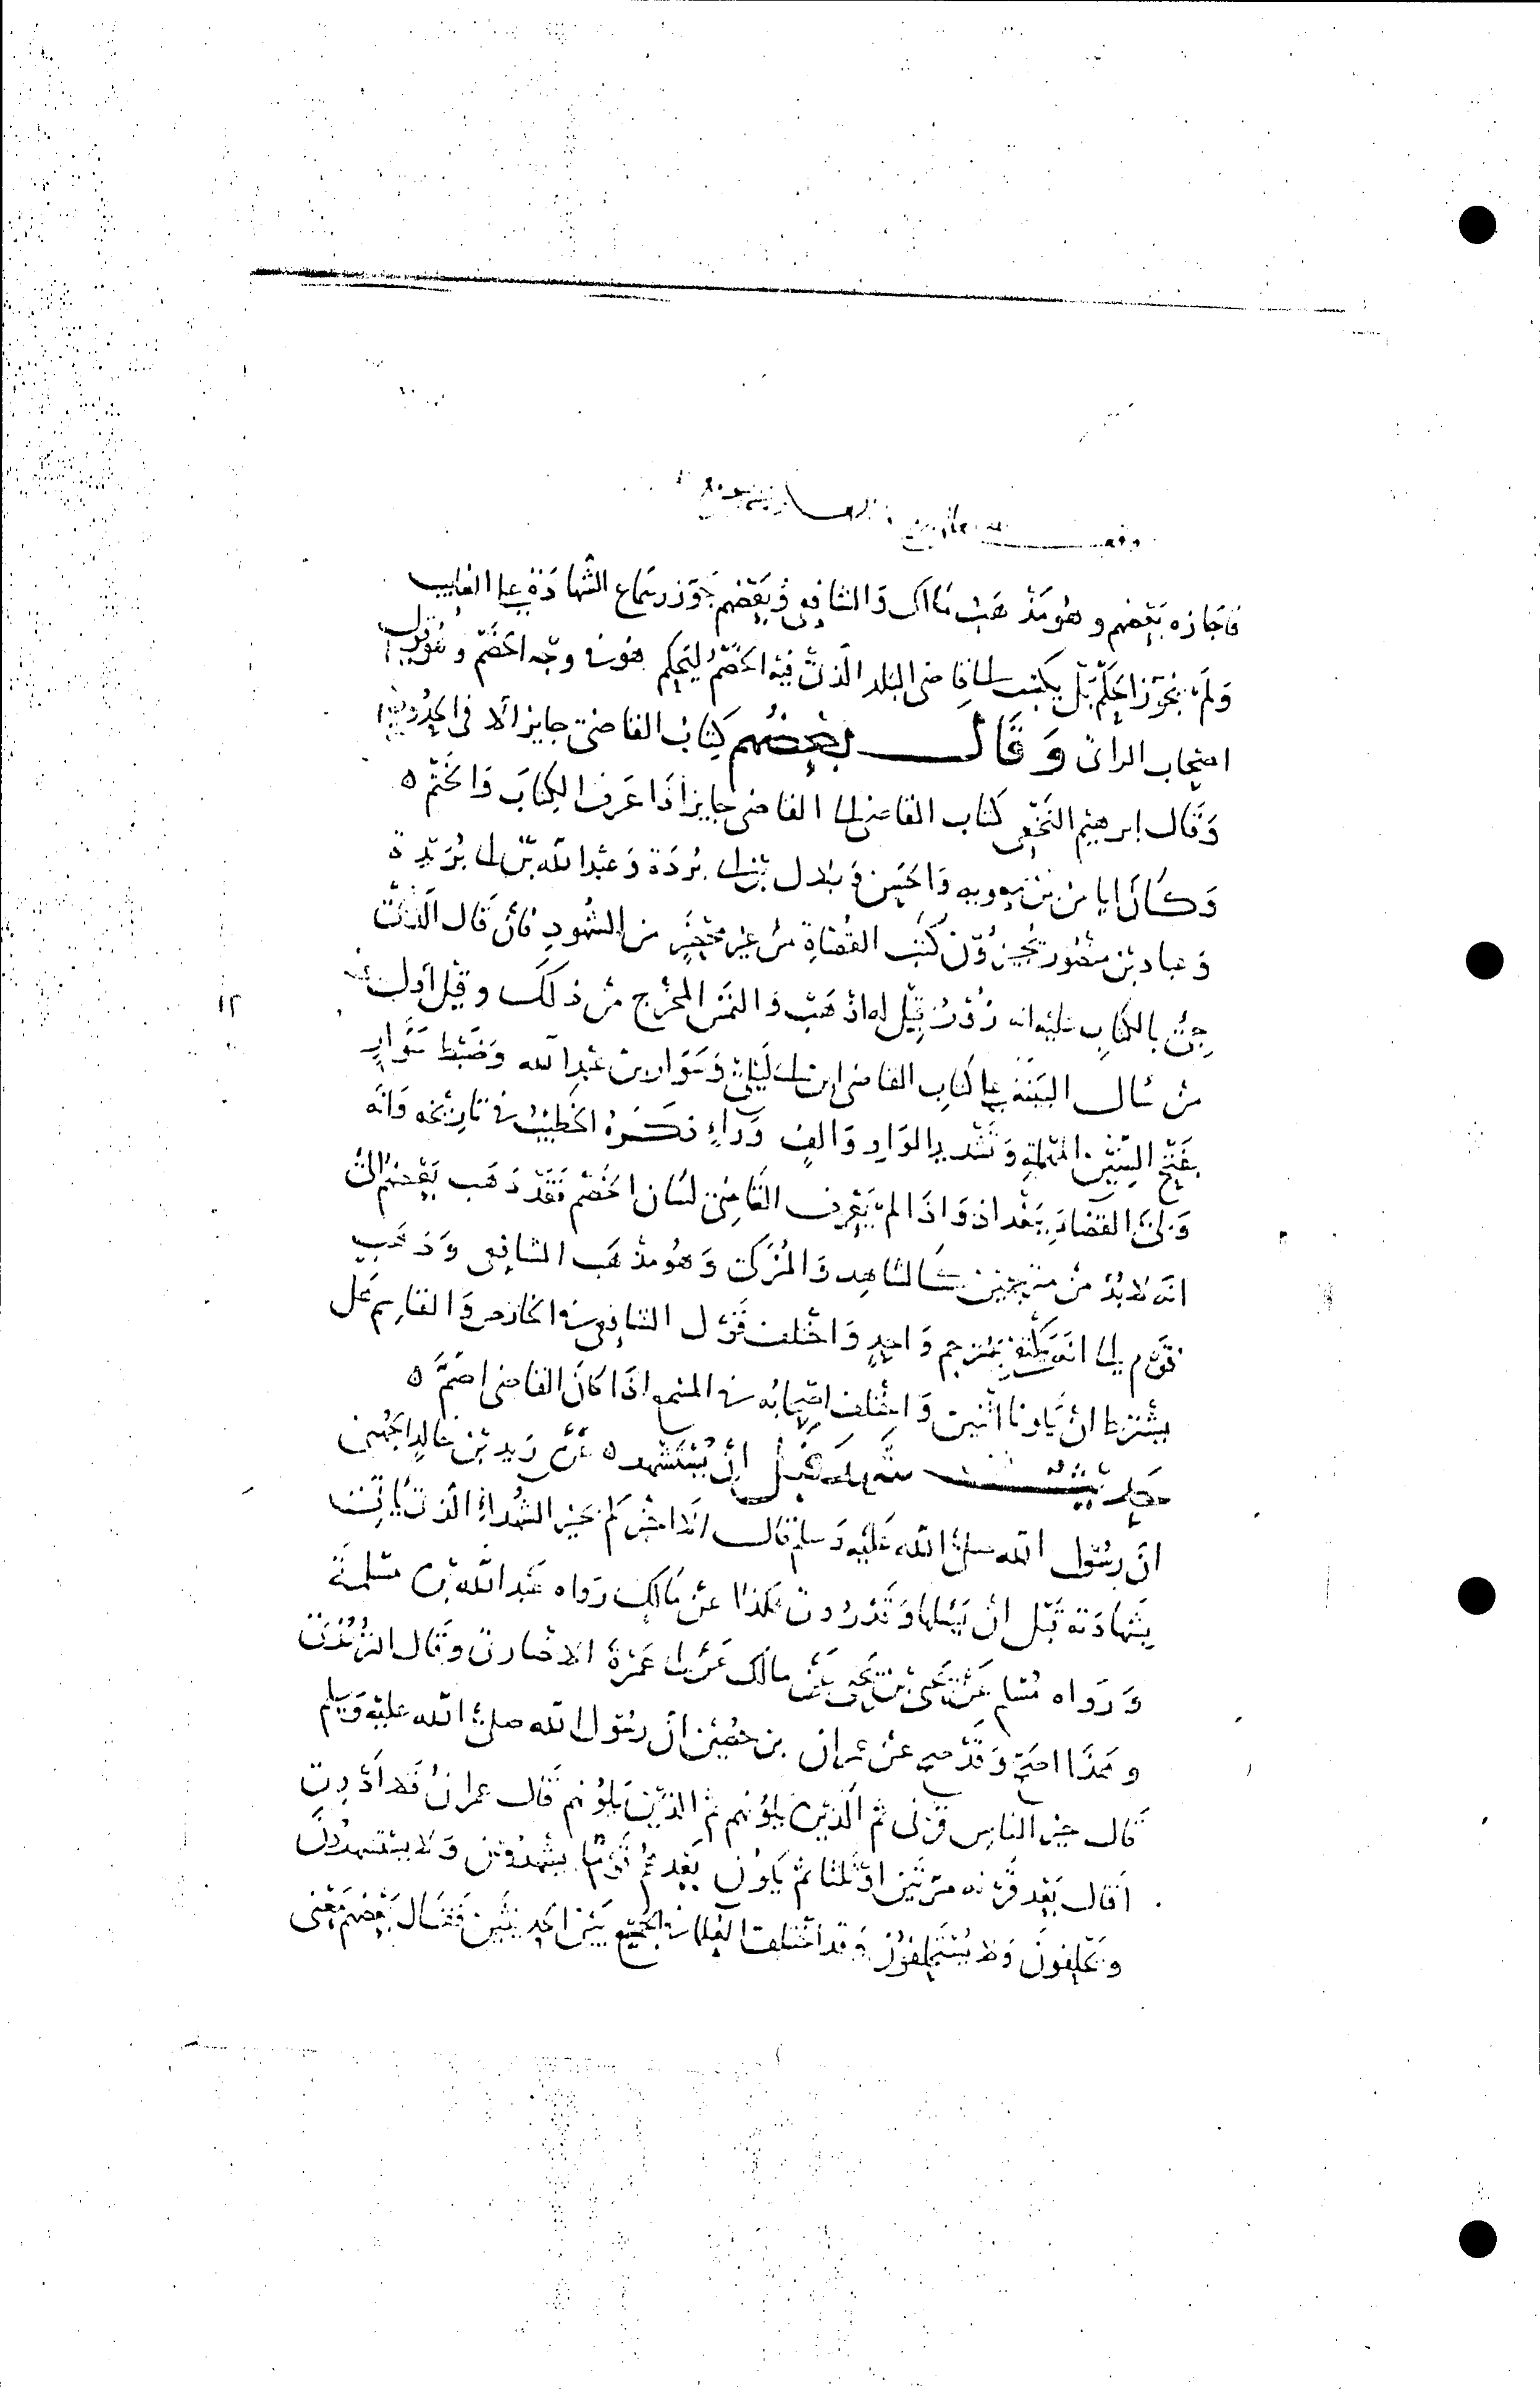 فَاجَازه بَعْضهم وهُو مَذهَبُ مَالك وَالشافِعي وبَعَضهم جَوّز سَمَاع الشّهادَةِ على الغايب
وَلمْ يُجوّز الحكْم بَلْ يكتب الى قاضى البَلد الّذيْ فيْهِ الخصْمُ ليَحكم هُو في وجْه الخَصْم وهُو قول
اصحاب الراي وَقَال بَعْضُهم كِتابُ القاضي جايز الا في الحدُود
وَقَال إبرهيم النَخعى كتاب القاضى الى القاضى جايز اذَا عَرف الكِتابَ وَالخَتْم ٥
وَكَانَ اياس بْن معويه وَالحسَن وَبلال بْن ابى بُردَة وَعبْد الله بْن ابى بُرَيْدة
وَعباد بْن منْصُور يُجيزُوْن كتُب القُضاةِ منْ غير محْضَرٍ من الشُهودِ فانْ قَال الَّذيْ
جِئ بالكتابِ عليْه انه زُوْرٌ قِيْل له اذْهَبْ فالتمس المخْرج من ذلكَ وقيْل أول
مَنْ سَال البَينَة على كتابِ القاضى ابن ابى لَيْلى وَسَوّار بن عبْد الله وَضَبْط سَوَّارٍ
بفَتْح السِّيْن المهْملةِ وَتَشْديد الوَاوِ وَالفٍ وَرَاءٍ ذكَرهُ الخَطيْب في تاريْخه وَانّه
وَلىَ القضَاءَ ببَغْداد وَاذَا لمْ يَعْرف القَاضيْ لسَان الخصْم فَقَدْ ذَهَب بَعْضهُمْ الى
انّه لا بُدّ منْ مترجمين كَالشاهِد وَالمُزكي وَهُو مذْهَب الشافعى وَذهَب
قَوْم الى انّه يَكْتفى بمُترجم وَاحدٍ وَاخْتلف قَوْل الشافِعى في الخارص وَالقاسِم هَل
يشْترط انْ يَكونا اثْنين وَاخْتلف اصْحابُه في المسمع اذَا كانَ القاضى اصَمّ ٥
حَديْث شَهادة قَبْل انْ يُسْتَشْهد ٥ عَنْ زيد بْن خالدٍ الجُهنى
انّ رسُول الله صلى الله عَليْه وَسلم قال الا اخبركم بخَير الشُهداءِ الّذيْ يَاتي
بشَهادَته قَبْل انْ يُسْئلها وَقَدْ رُوي هكذا عنْ مَالكٍ رَواه عَبْد الله بْن مَسْلمَة
وَرَواه مُسْلم عَنْ يَحيى بْن يَحيى عَنْ مالك عَنْ ابى عَمْرَة الانصاري وقَال الترْمُذي
وهَذَا اصَحّ وَقَدْ صح عنْ عمران بن حصَيْن انّ رسُول الله صلى الله عليْه وَسلم
قَال خيْر الناسِ قَرْني ثم الّذيْن يلُونهم ثم الّذيْن يَلُونهم قَال عمرانُ فَلا ادْري
اقال بَعْد قَرْنه مرتَيْن اوْ ثَلثا ثم يَكون بَعْدهُمْ قَوْمٌ يشْهدُوْن وَلا يسْتشهدُون
وَيَحْلِفونَ وَلا يُسْتَحْلفوْن وَقد اخْتلف العُلماء في الجمْع بَيْن الحَديْثيْن فَقَال بَعْضهم مَعْنى
١٢